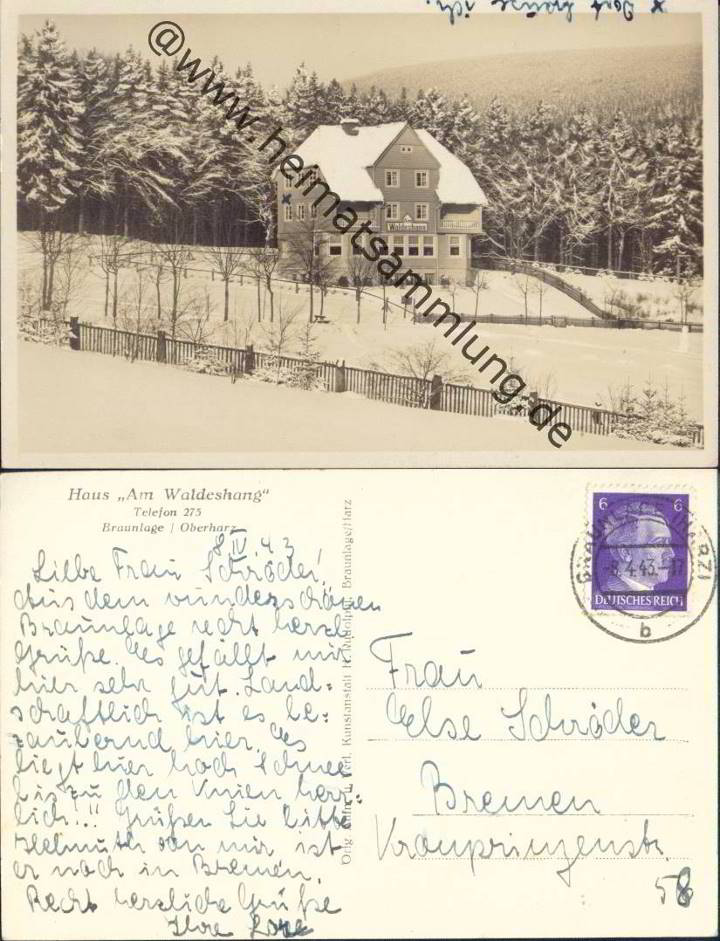 x Dort hause ich.
@www.heimatsammlung.de
Am
Waldeshang
Haus „Am Waldeshang"
Telefon 275
Braunlage / Oberharz
8.IV.43
Liebe Frau Schröder!
Aus dem wunderschönen
Braunlage recht herzl.
Grüße. Es gefällt mir
hier sehr gut. Land-
schaftlich ist es be-
zaubernd hier. Es
liegt hier hoch Schnee
bis zu den Knien herr-
lich!! Grüßen Sie bitte
Helmuth von mir ist
er noch in Bremen.
Recht herzliche Grüße
Ihre Lore
Orig. Aufn. u. Verl. Kunstanstalt H. Rudolphi, Braunlage/Harz
6 6
DEUTSCHES REICH
BRAUNLAGE (HARZ)
-8.4.43.-17
b
Frau
Else Schröder
Bremen
Kronprinzenstr.
58